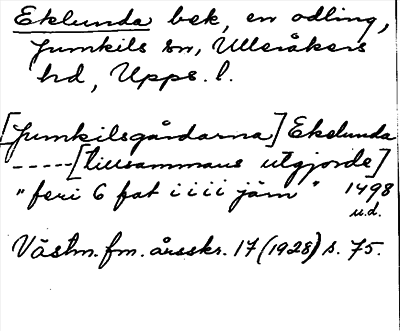 Eklunda bek, en odling,
Jumkils sn, Ulleråkers
hd, Upps. l.
[Jumkilsgårdarna] Ekelunda
-----[tillsammans utgjorde]
"feri 6 fat i i i i järn" 1498
u.d.
Västm. fm. årsskr. 17 (1928) s. 75.